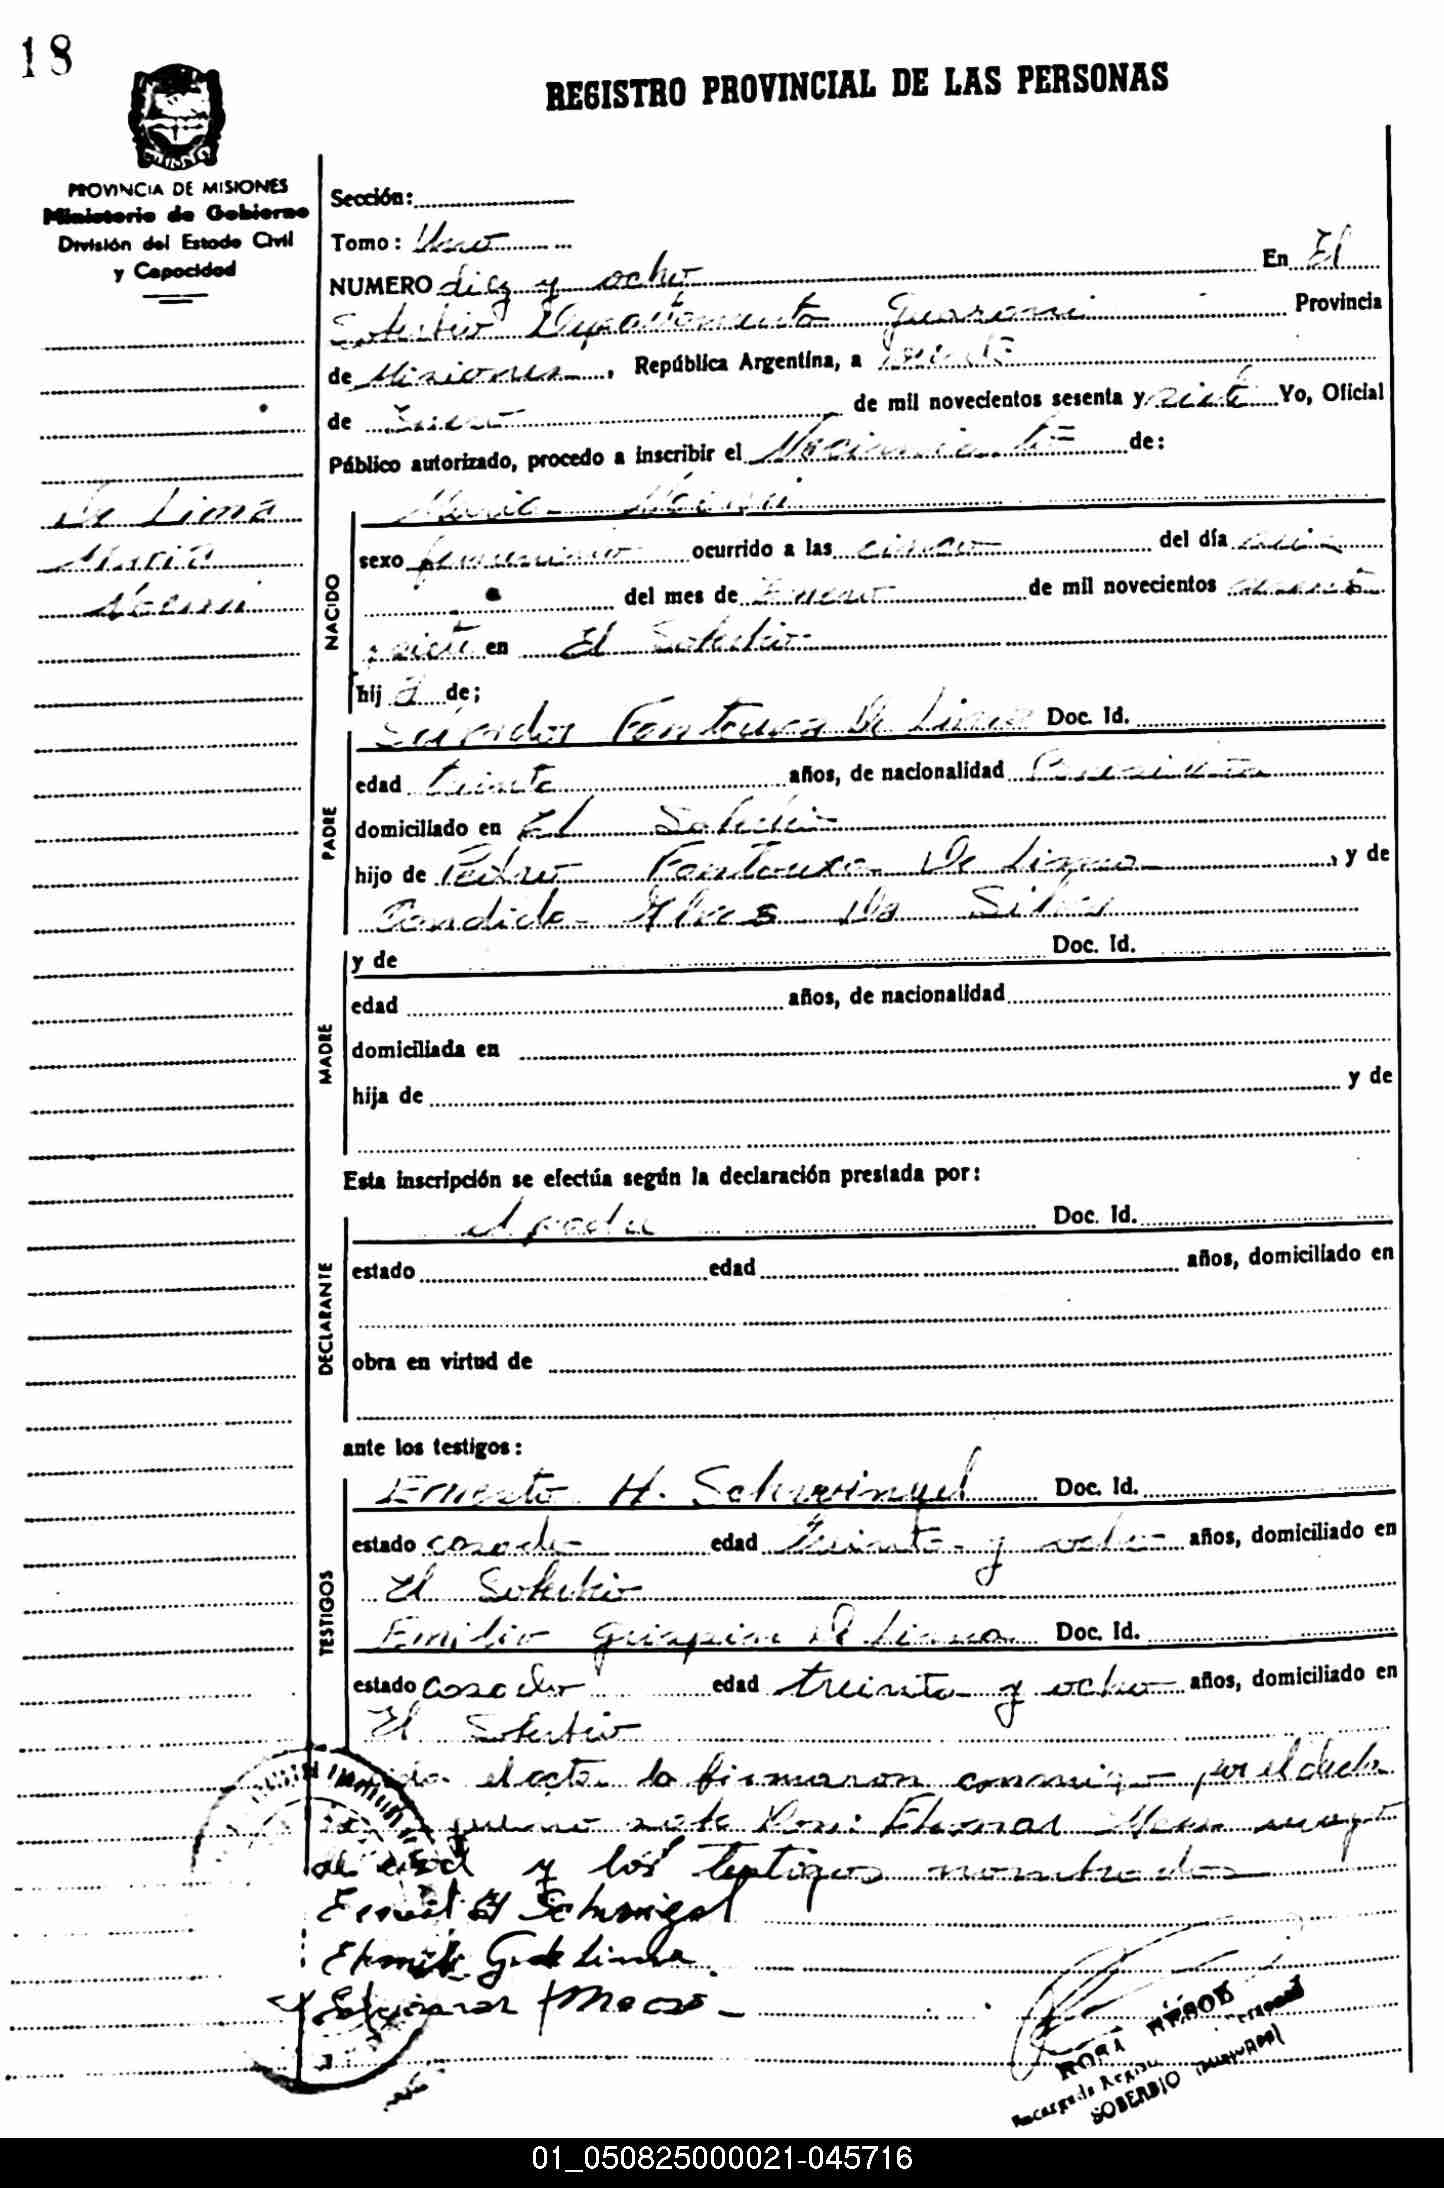 18
REGISTRO PROVINCIAL DE LAS PERSONAS
PROVINCIA DE MISIONES
Ministerio de Gobierno
División del Estado Civil
y Capacidad
Sección:
Tomo: Uno
NUMERO diez y ocho En El
Soberbio Departamento Guarani Provincia
de Misiones, República Argentina, a
de Enero de mil novecientos sesenta y siete Yo, Oficial
Público autorizado, procedo a inscribir el Nacimiento de:
De Lima
Maria
Maria
NACIDO
sexo femenino ocurrido a las cinco del día
del mes de Enero de mil novecientos sesenta
y siete en El Soberbio
hij a de;
PADRE
Fontoura De Lima Doc. Id.
edad treinta años, de nacionalidad
domiciliado en El Soberbio
hijo de Pedro Fontoura De Lima, y de
Candida Alves Da Silva
MADRE
y de Doc. Id.
edad años, de nacionalidad
domiciliada en
hija de y de
Esta inscripción se efectúa según la declaración prestada por:
DECLARANTE
el padre Doc. Id.
estado edad años, domiciliado en
obra en virtud de
ante los testigos:
TESTIGOS
Ernesto H. Schwingel Doc. Id.
estado casado edad treinta y ocho años, domiciliado en
El Soberbio
Emilio De Lima Doc. Id.
estado casado edad treinta y ocho años, domiciliado en
El Soberbio
el acta la firmaron conmigo por el decla
de edad y los testigos nombrados
ROSA
SOBERBIO
01_050825000021-045716